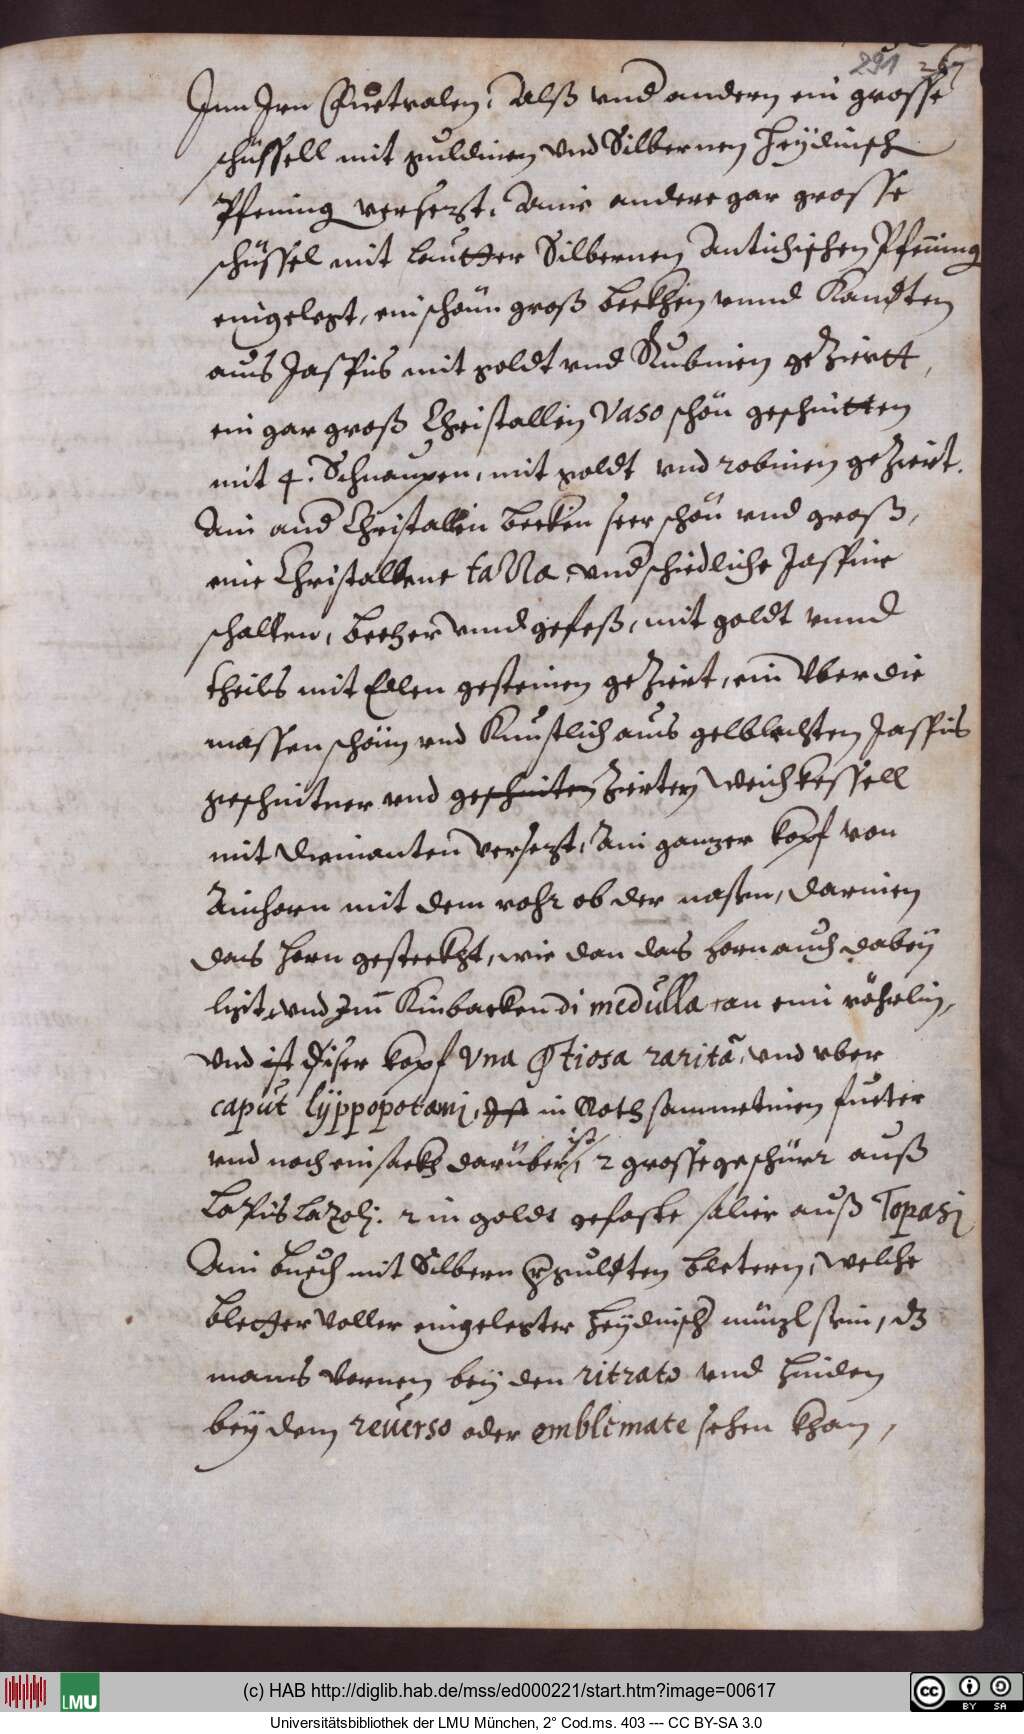 291 267
Inn Irn Fuetralen, Alß vnd andern ein grosse
schüssell mit guldinen vnd Silbernen Heÿdnisch
Pfening versezt, Aine andere gar grosse
schüssel mit lautter Silbernen Antichischen Pfening
eingelegt, ein schönn groß beckhen vnnd Kandten
aus Jaspis mit goldt vnd Rubinen geZiertt,
ein gar groß Christallin Vaso schön geschnitten
mit 4. Schnaupen, mit goldt vnd robinen geZiert.
Ain and Christallin becken seer schön vnd groß,
eine Christallene tazza, vndschiedliche Jaspine
schallen, becher vnnd gefeß, mit goldt vnnd
theils mit Edlen gesteinen geZiert, ein Vber die
massen schönn vnd Kunstlich aus gelblechten Jaspis
geschnitner vnd geschniten Zierter Weichkessell
mit Diemanten Versezt, Ain ganzer kopf von
Ainhorn mit dem rohr ob der nasen, darinen
das Horn gesteckht, wie dan das horn auch dabeÿ
ligt, vnd Im Kinbacken di medulla an eim röhrlin,
vnd ist diser kopf Vna ptiosa raritã, vnd vber
caput Hÿppopotami, Ist in Roth sammetinen fueter
vnd noch ein sackh darüber, ist, 2 grosse geschürr auß
Lapis Lazolj. 2 in goldt gefaste salier auß Topasj
Ain buech mit Silbern vguldten bletern, Welche
bletter Voller eingelegter heÿdnisch münzl sein, dz
mans Vornen beÿ den ritrato vnd hinden
beÿ dem reuerso oder emblemate sehen khan,
(c) HAB http://diglib.hab.de/mss/ed000221/start.htm?image=00617
LMU
cc BY SA
Universitätsbibliothek der LMU München, 2° Cod.ms. 403 --- CC BY-SA 3.0